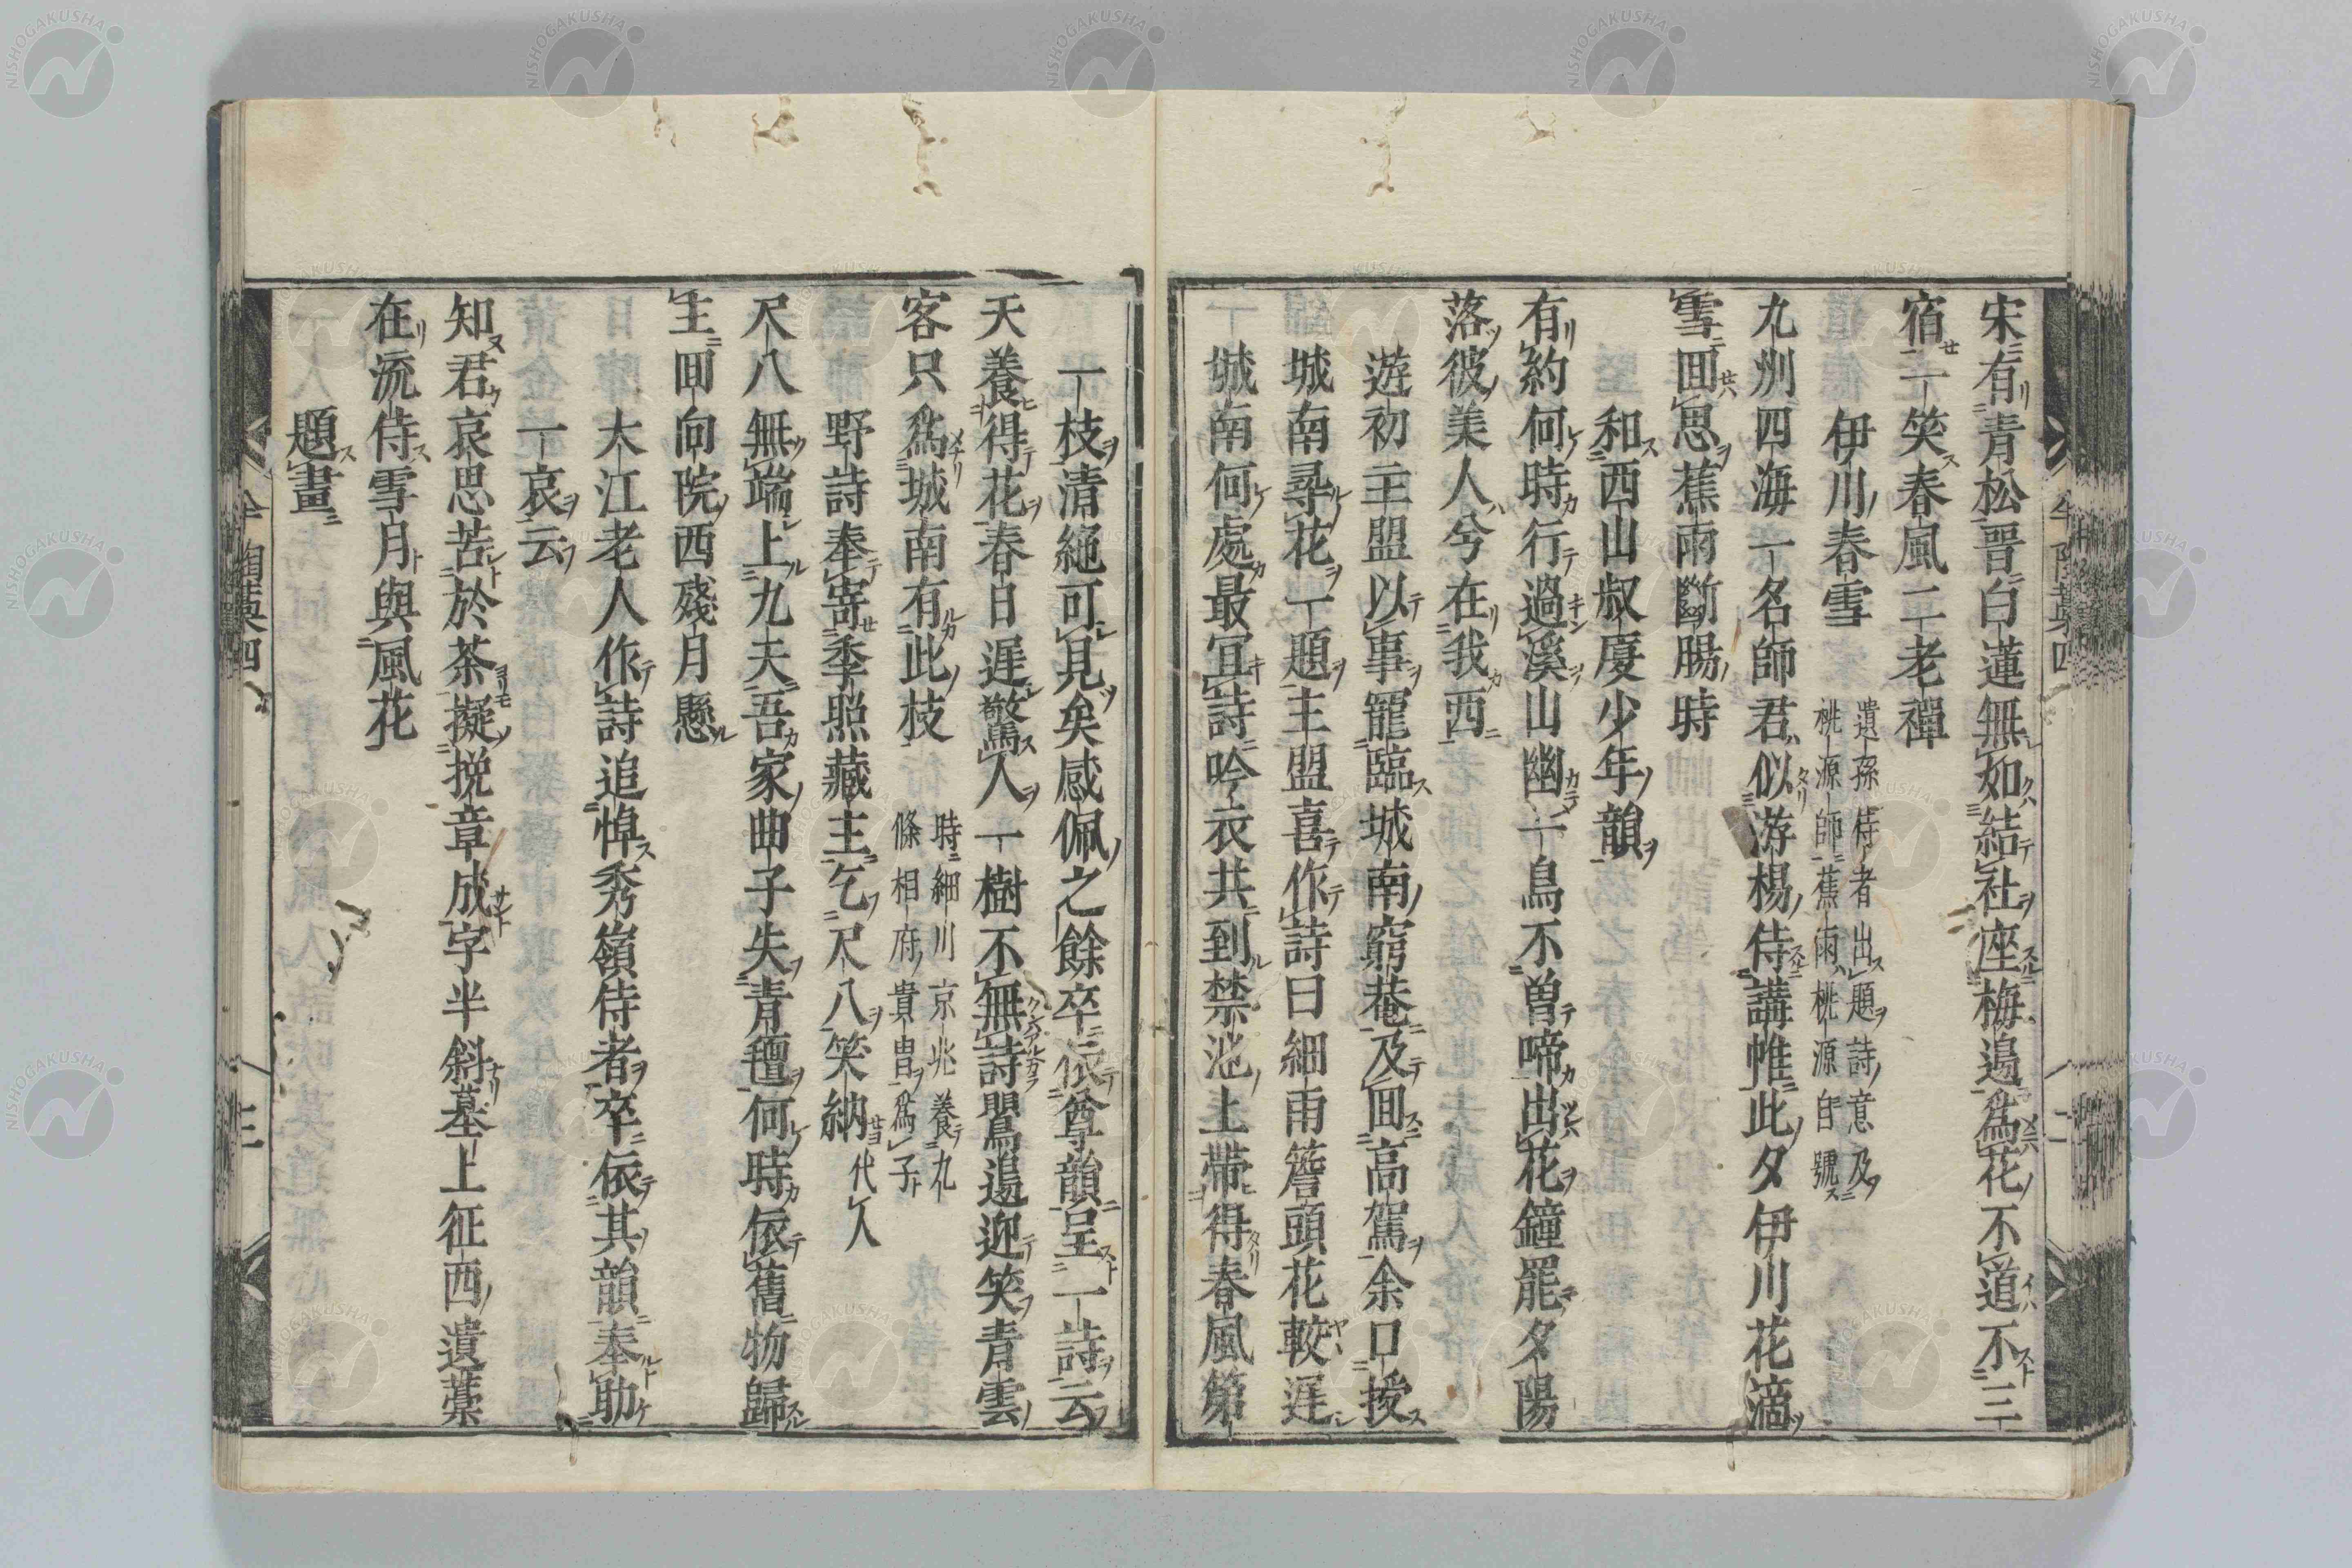 宋有青松晉白蓮無如結社座梅邊爲花不道不三
宿一笑春風二老禪
伊川春雪
遺孫侍者出題詩意及
桃源師蕉雨桃源自號
九州四海一名師君似游楊侍講帷此夕伊川花滴
雪回思蕉雨斷腸時
和西山叔慶少年韻
有約何時行過溪山幽一鳥不曽啼出花鐘罷夕陽
落彼美人兮在我西
遊初主盟以事寵臨城南窮菴及回高駕余口授
城南尋花一題主盟喜作詩曰細雨簷頭花較遲
城南何處最宜詩吟衣共到禁池上帶得春風第
一枝清絕可見矣感佩之餘卒依尊韻呈一詩云
天養得花春日遲驚人一樹不無詩鸎邊迎笑青雲
客只爲城南有此枝
時細川京兆養九
條相府貴冑爲子
野詩奉寄季照藏主乞尺八笑納
代人
尺八無端上九夫吾家曲子失青氊何時依舊物歸
主回向院西殘月懸
大江老人作詩追悼秀嶺侍者卒依其韻奉助
一哀云
知君哀思苦於茶擬挽章成字半斜墓上征西遺藁
在流侍雪月與風花
題畫
三